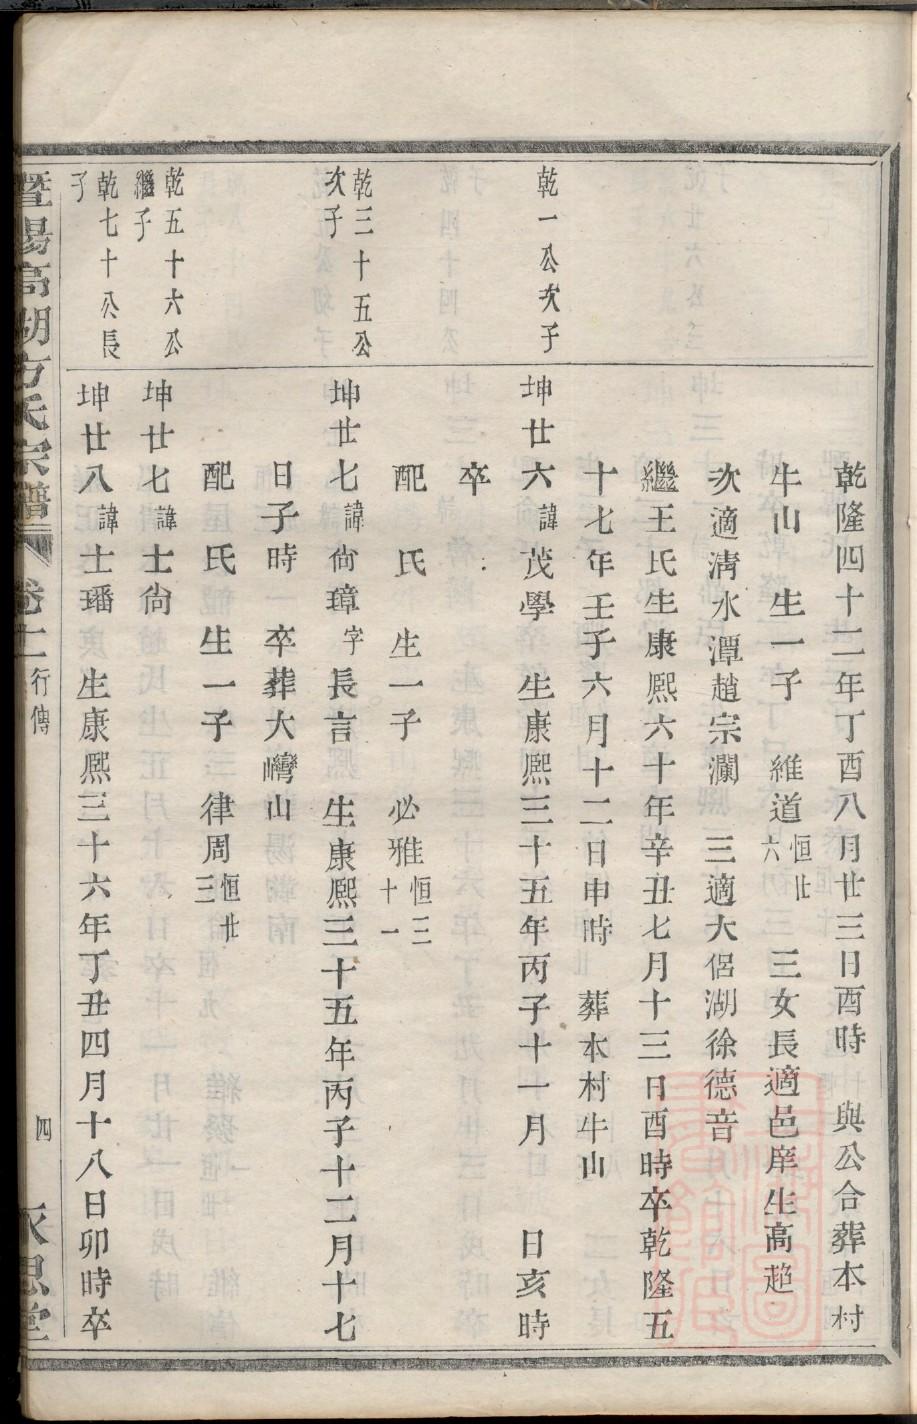 乾隆四十二年丁酉八月廿三日酉時 與公合葬本村
牛山 生一子 維道恒廿六 三女長適邑庠生高超
次適淸水潭趙宗瀾 三適大侶湖徐德音
繼王氏生康熙六十年辛丑七月十三日酉時卒乾隆五
十七年壬子六月十二日申時 葬本村牛山
乾一公次子
坤廿六諱茂學 生康熙三十五年丙子十一月 日亥時
卒
配 氏 生一子 必雅恒三十一
乾三十五公次子
坤廿七諱尙璋字長言 生康熙三十五年丙子十二月十七
日子時 卒葬大灣山
配 氏 生一子 律周恒廿三
乾五十六公繼子
坤廿七諱士尙
乾七十公長子
坤廿八諱士璠 生康熙三十六年丁丑四月十八日卯時卒
暨陽高湖方氏宗譜 卷十一 行傳 四 永思堂